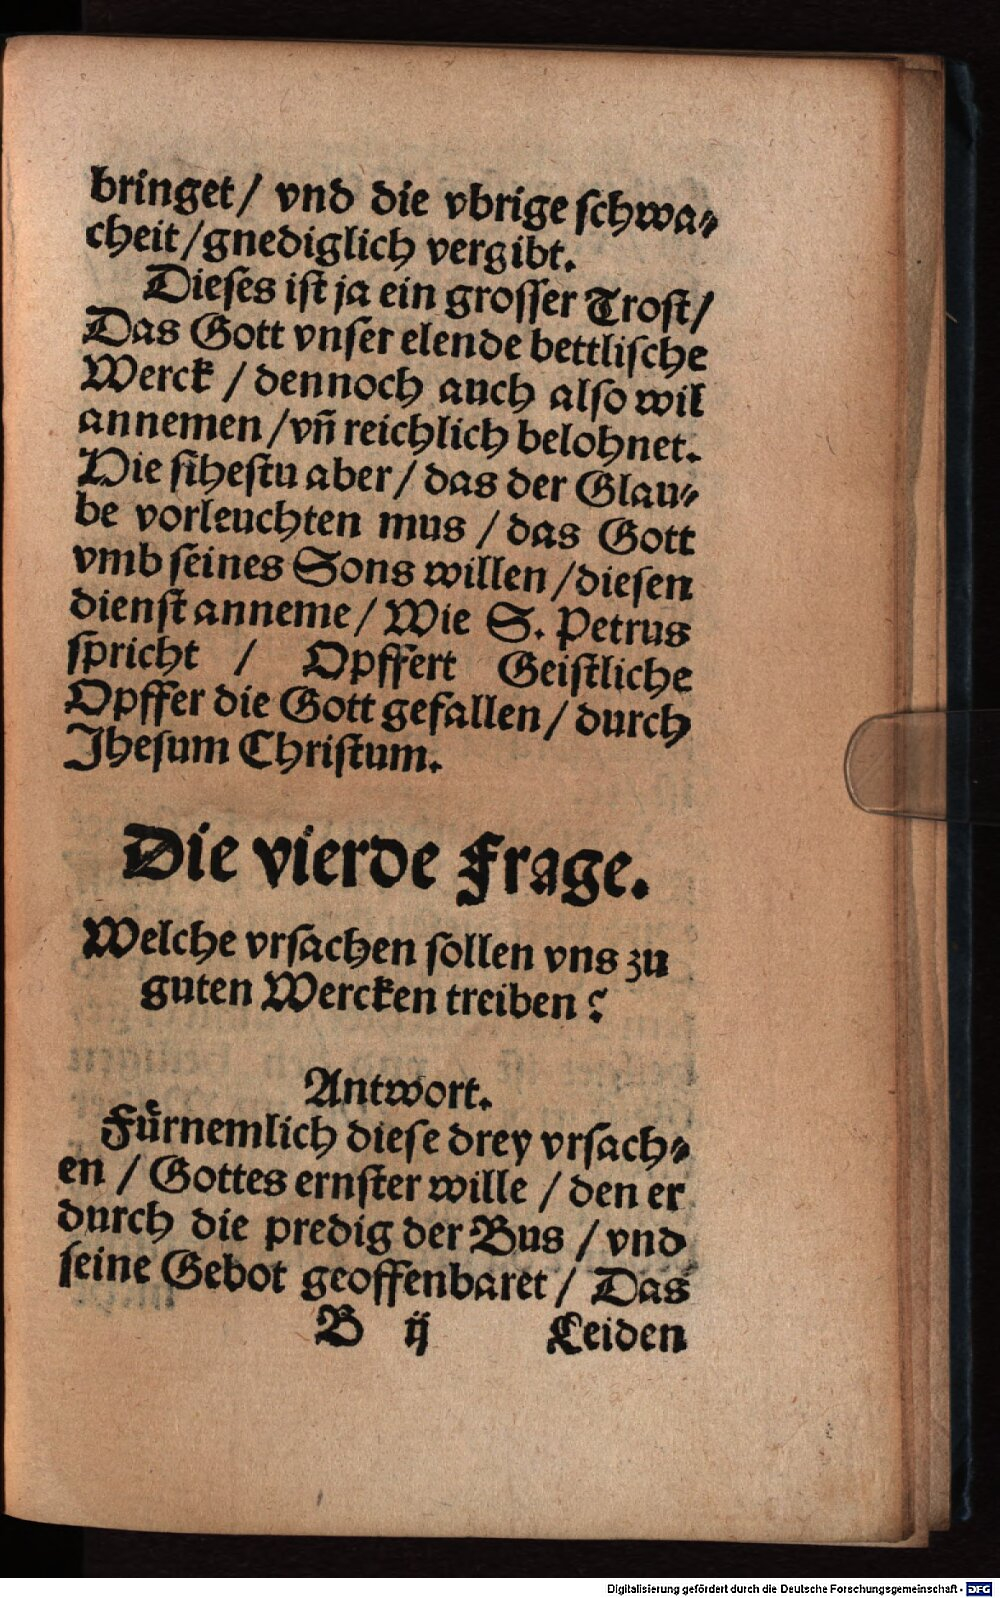 bringet / vnd die vbrige schwa⸗
cheit / gnediglich vergibt.
Dieses ist ja ein grosser Trost /
Das Gott vnser elende bettlische
Werck / dennoch auch also wil
annemen / vñ reichlich belohnet.
Hie sihestu aber / das der Glau⸗
be vorleuchten mus / das Gott
vmb seines Sons willen / diesen
dienst anneme / Wie S. Petrus
spricht / Opffert Geistliche
Opffer die Gott gefallen / durch
Jhesum Christum.
Die vierde Frage.
Welche vrsachen sollen vns zu
guten Wercken treiben?
Antwort.
Fuͤrnemlich diese drey vrsach⸗
en / Gottes ernster wille / den er
durch die predig der Bus / vnd
seine Gebot geoffenbaret / Das
B ij Leiden
Digitalisierung gefördert durch die Deutsche Forschungsgemeinschaft - DFG